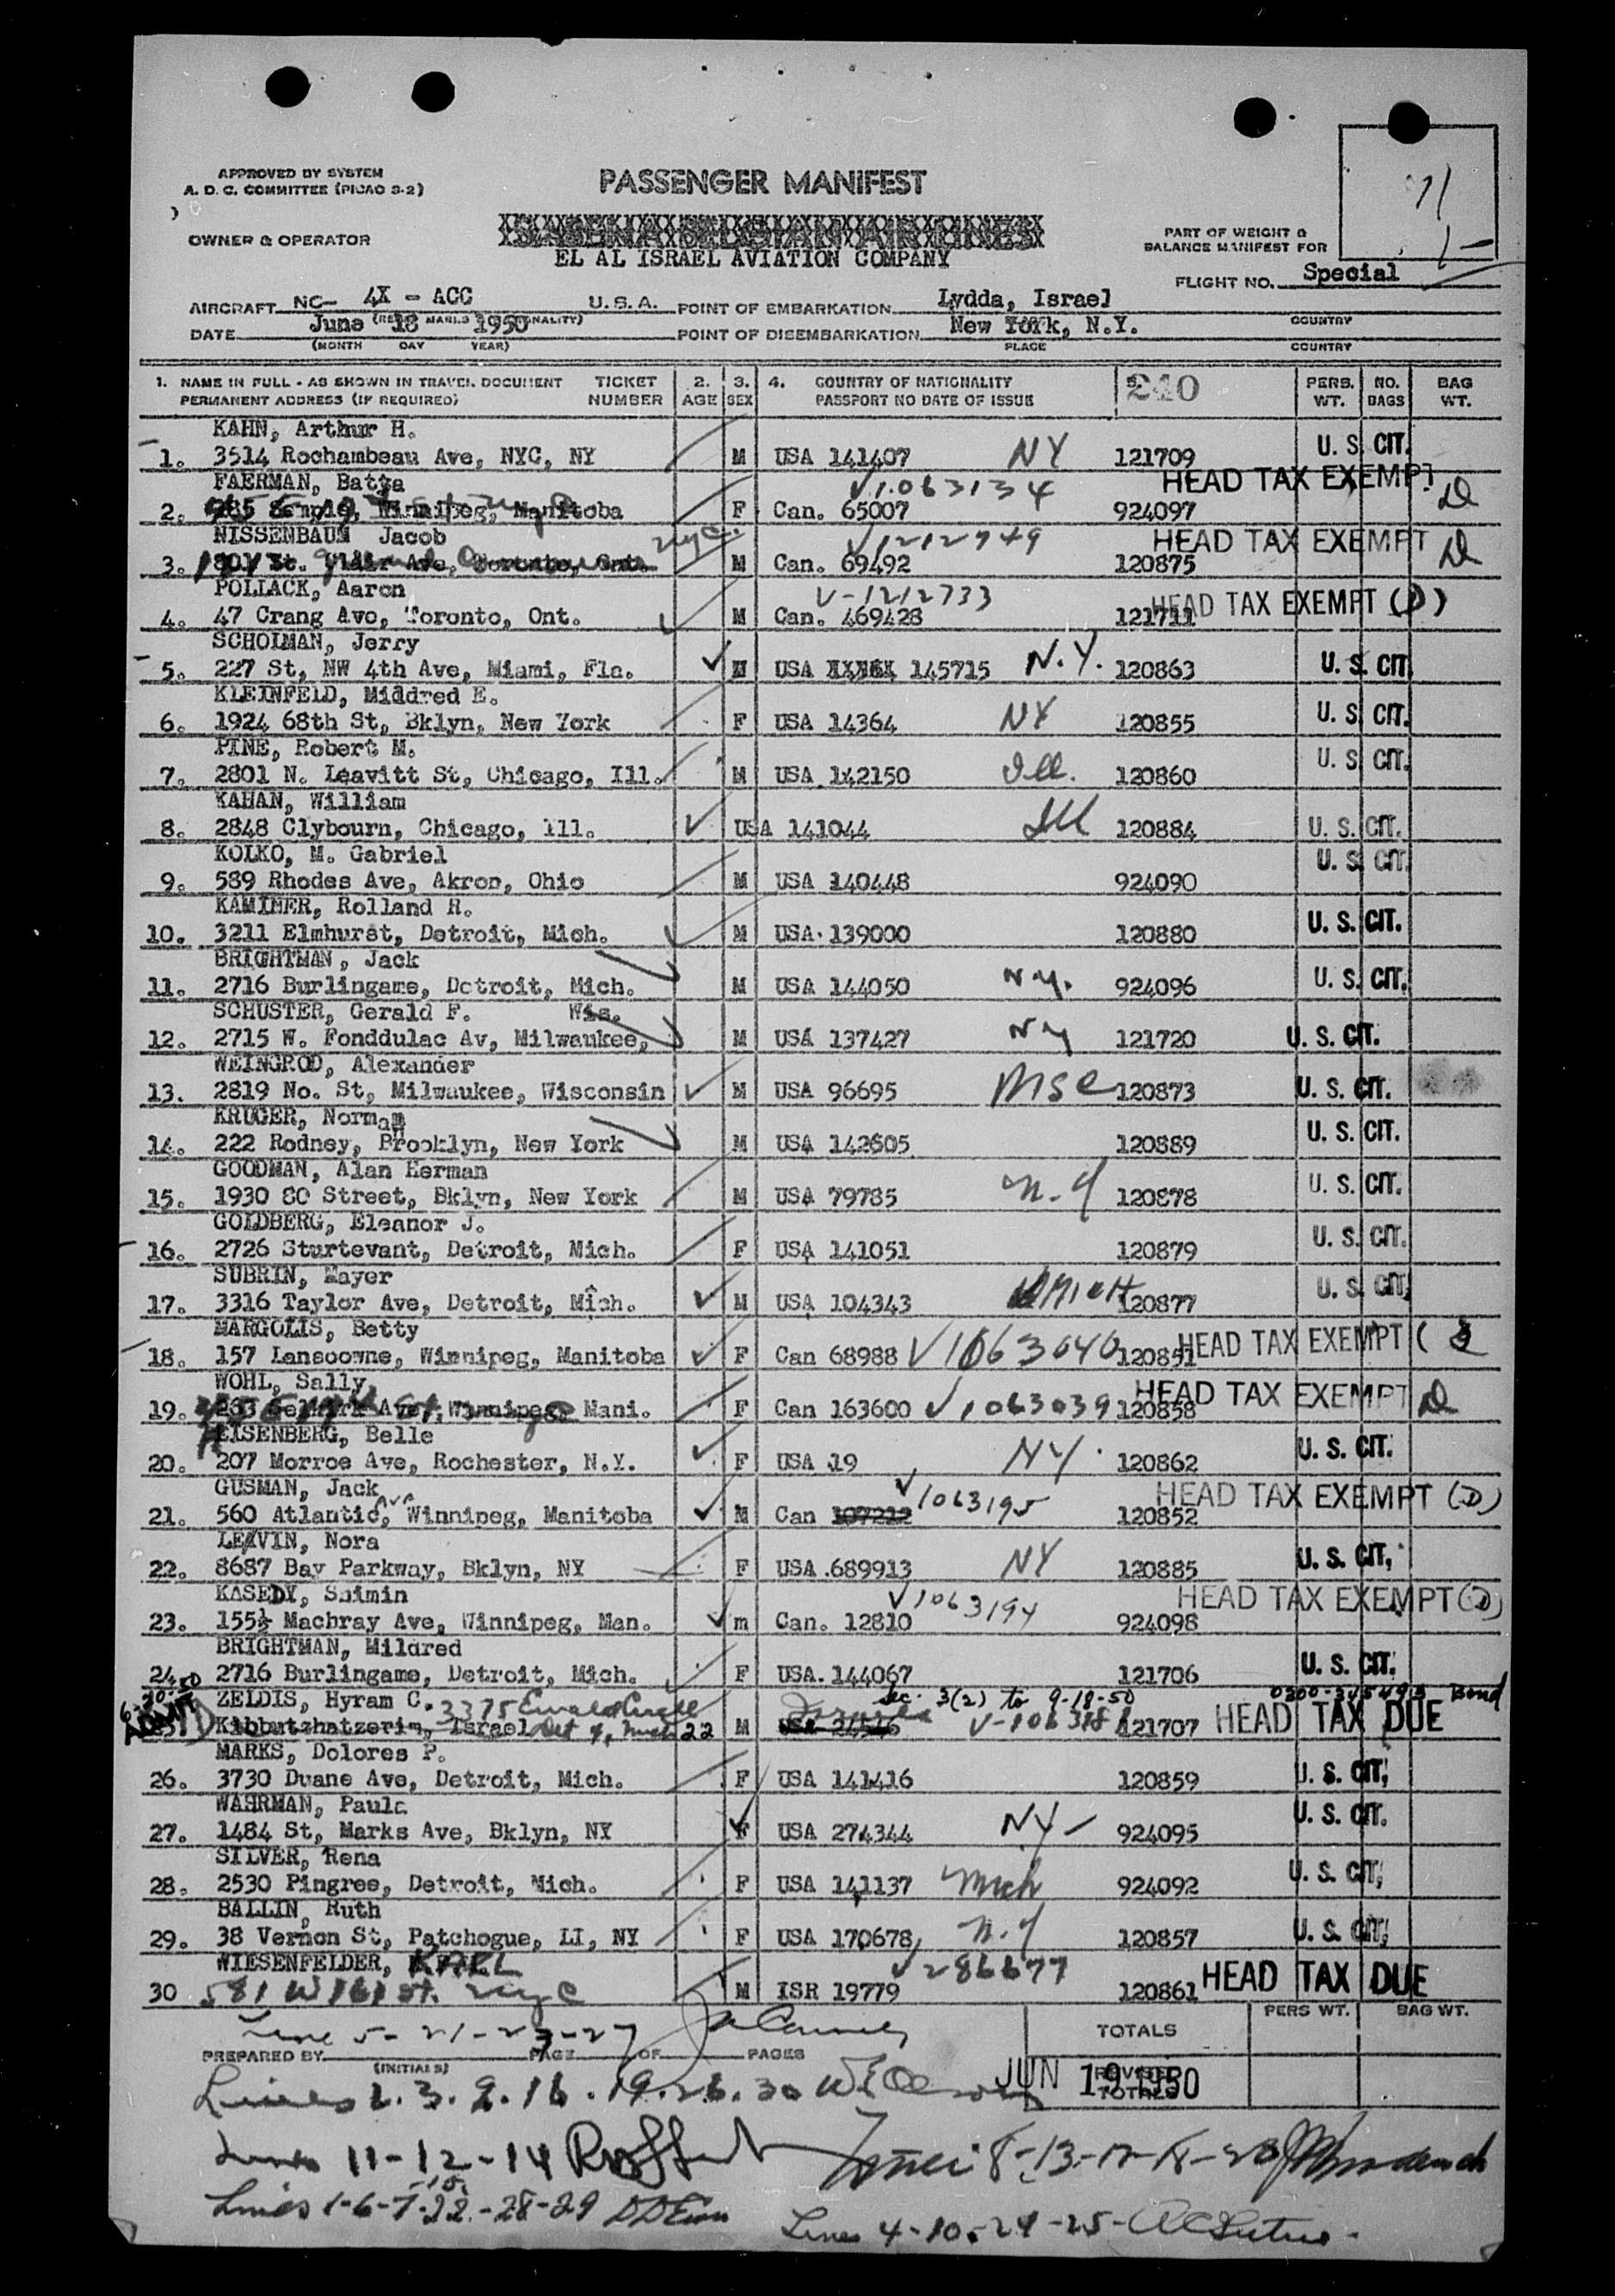 APPROVED BY SYSTEM
A. D. C. COMMITTEE (PICAO S-2)
PASSENGER MANIFEST
OWNER & OPERATOR
EL AL ISRAEL AVIATION COMPANY
PART OF WEIGHT &
BALANCE MANIFEST FOR
FLIGHT NO. Special
AIRCRAFT NC- 4X - ACC U. S. A. POINT OF EMBARKATION Lydda, Israel COUNTRY
DATE June 18 1950 POINT OF DISEMBARKATION New York, N.Y.
(MONTH DAY YEAR) PLACE COUNTRY
1. NAME IN FULL - AS SHOWN IN TRAVEL DOCUMENT TICKET 2. 3. 4. COUNTRY OF NATIONALITY 240 PERS. NO. BAG
PERMANENT ADDRESS (IF REQUIRED) NUMBER AGE SEX PASSPORT NO DATE OF ISSUE WT. BAGS WT.
KAHN, Arthur H.
1. 3514 Rochambeau Ave, NYC, NY M USA 141407 NY 121709 U. S. CIT.
FAERMAN, Batya V1063134 HEAD TAX EXEMPT D
2. Winnipeg, Manitoba F Can. 65007 924097
NISSENBAUM Jacob nyc. V1212749 HEAD TAX EXEMPT D
3. M Can. 69492 120875
POLLACK, Aaron V-1212733 HEAD TAX EXEMPT (D)
4. 47 Crang Ave, Toronto, Ont. M Can. 469428 121711
SCHOLMAN, Jerry
5. 227 St, NW 4th Ave, Miami, Fla. M USA 145715 N.Y. 120863 U. S. CIT.
KLEINFELD, Mildred E.
6. 1924 68th St, Bklyn, New York F USA 14364 NY 120855 U. S. CIT.
PINE, Robert M.
7. 2801 N. Leavitt St, Chicago, Ill. M USA 142150 Ill. 120860 U. S. CIT.
KAHAN, William
8. 2848 Clybourn, Chicago, Ill. USA 141044 Ill 120884 U. S. CIT.
KOLKO, M. Gabriel
9. 589 Rhodes Ave, Akron, Ohio M USA 140448 924090 U. S. CIT.
KAMINER, Rolland H.
10. 3211 Elmhurst, Detroit, Mich. M USA 139000 120880 U. S. CIT.
BRIGHTMAN, Jack
11. 2716 Burlingame, Detroit, Mich. M USA 144050 N.Y. 924096 U. S. CIT.
SCHUSTER, Gerald F. Wis.
12. 2715 W. Fonddulac Av, Milwaukee, M USA 137427 NY 121720 U. S. CIT.
WEINGROD, Alexander
13. 2819 No. St, Milwaukee, Wisconsin M USA 96695 120873 U. S. CIT.
KRUGER, Norman
14. 222 Rodney, Brooklyn, New York M USA 142605 120889 U. S. CIT.
GOODMAN, Alan Herman
15. 1930 80 Street, Bklyn, New York M USA 79785 N.Y 120878 U. S. CIT.
GOLDBERG, Eleanor J.
16. 2726 Sturtevant, Detroit, Mich. F USA 141051 120879 U. S. CIT.
SUBRIN, Mayer
17. 3316 Taylor Ave, Detroit, Mich. M USA 104343 MICH 120877 U. S. CIT.
MARGOLIS, Betty HEAD TAX EXEMPT
18. 157 Lansdowne, Winnipeg, Manitoba F Can 68988 V1063040 120851
WOHL, Sally HEAD TAX EXEMPT D
19. Winnipeg, Mani. F Can 163600 V1063039 120858
EISENBERG, Belle
20. 207 Morroe Ave, Rochester, N.Y. F USA 19 NY 120862 U. S. CIT.
GUSMAN, Jack V1063195 HEAD TAX EXEMPT (D)
21. 560 Atlantic, Ave Winnipeg, Manitoba M Can 107212 120852
LEAVIN, Nora
22. 8687 Bay Parkway, Bklyn, NY F USA 689913 NY 120885 U. S. CIT.
KASEDY, Shimin V1063194 HEAD TAX EXEMPT (D)
23. 155½ Machray Ave, Winnipeg, Man. m Can. 12810 924098
BRIGHTMAN, Mildred
24. 2716 Burlingame, Detroit, Mich. F USA 144067 121706 U. S. CIT.
6-20-50 ZELDIS, Hyram C. 3375 Ewald Circle Sec. 3(2) to 9-18-50 Bond
ADMIT 25. Kibbutzhatzerim, Israel Det 4, Mich 22 M 121707 HEAD TAX DUE
MARKS, Dolores P.
26. 3730 Duane Ave, Detroit, Mich. F USA 141416 120859 U. S. CIT.
WAHRMAN, Paula
27. 1484 St, Marks Ave, Bklyn, NY F USA 274344 NY 924095 U. S. CIT.
SILVER, Rena
28. 2530 Pingree, Detroit, Mich. F USA 141137 Mich 924092 U. S. CIT.
BALLIN, Ruth
29. 38 Vernon St, Patchogue, LI, NY F USA 170678 N.Y 120857 U. S. CIT.
WIESENFELDER, KARL V286677
30 581 W 161 st. nyc M ISR 19779 120861 HEAD TAX DUE
PERS WT. BAG WT.
Line 5-21-23-27
TOTALS
PREPARED BY (INITIALS) PAGE OF PAGES
JUN 19 1950
REVISED TOTALS
Lines 2.3.9.16.19.26.30
Lines 11-12-14
Lines 1-6-7-15-22-28-29
Lines 4-10-24-25-